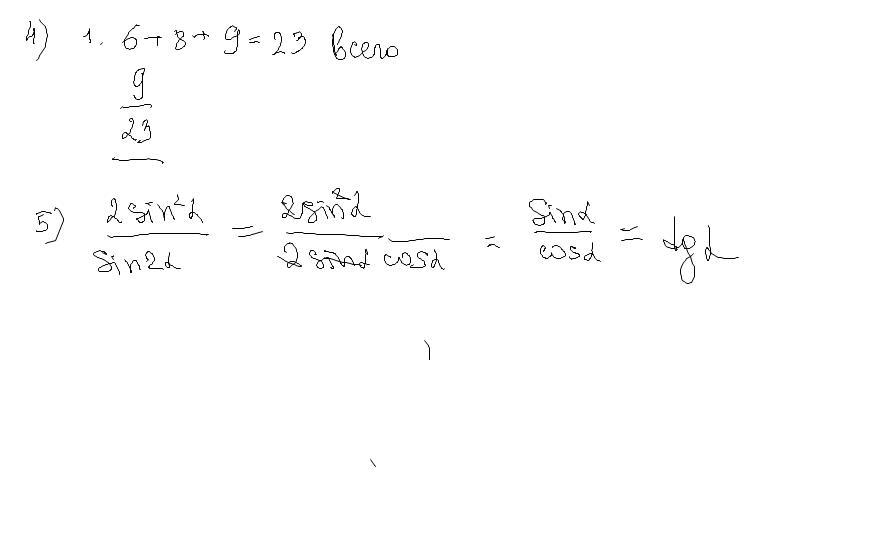 4) 1. 6 + 8 + 9 = 23 всего
9/23
5) 2sin²α/sin2α = 2sin²α/2sinα cosα = sinα/cosα = tgα